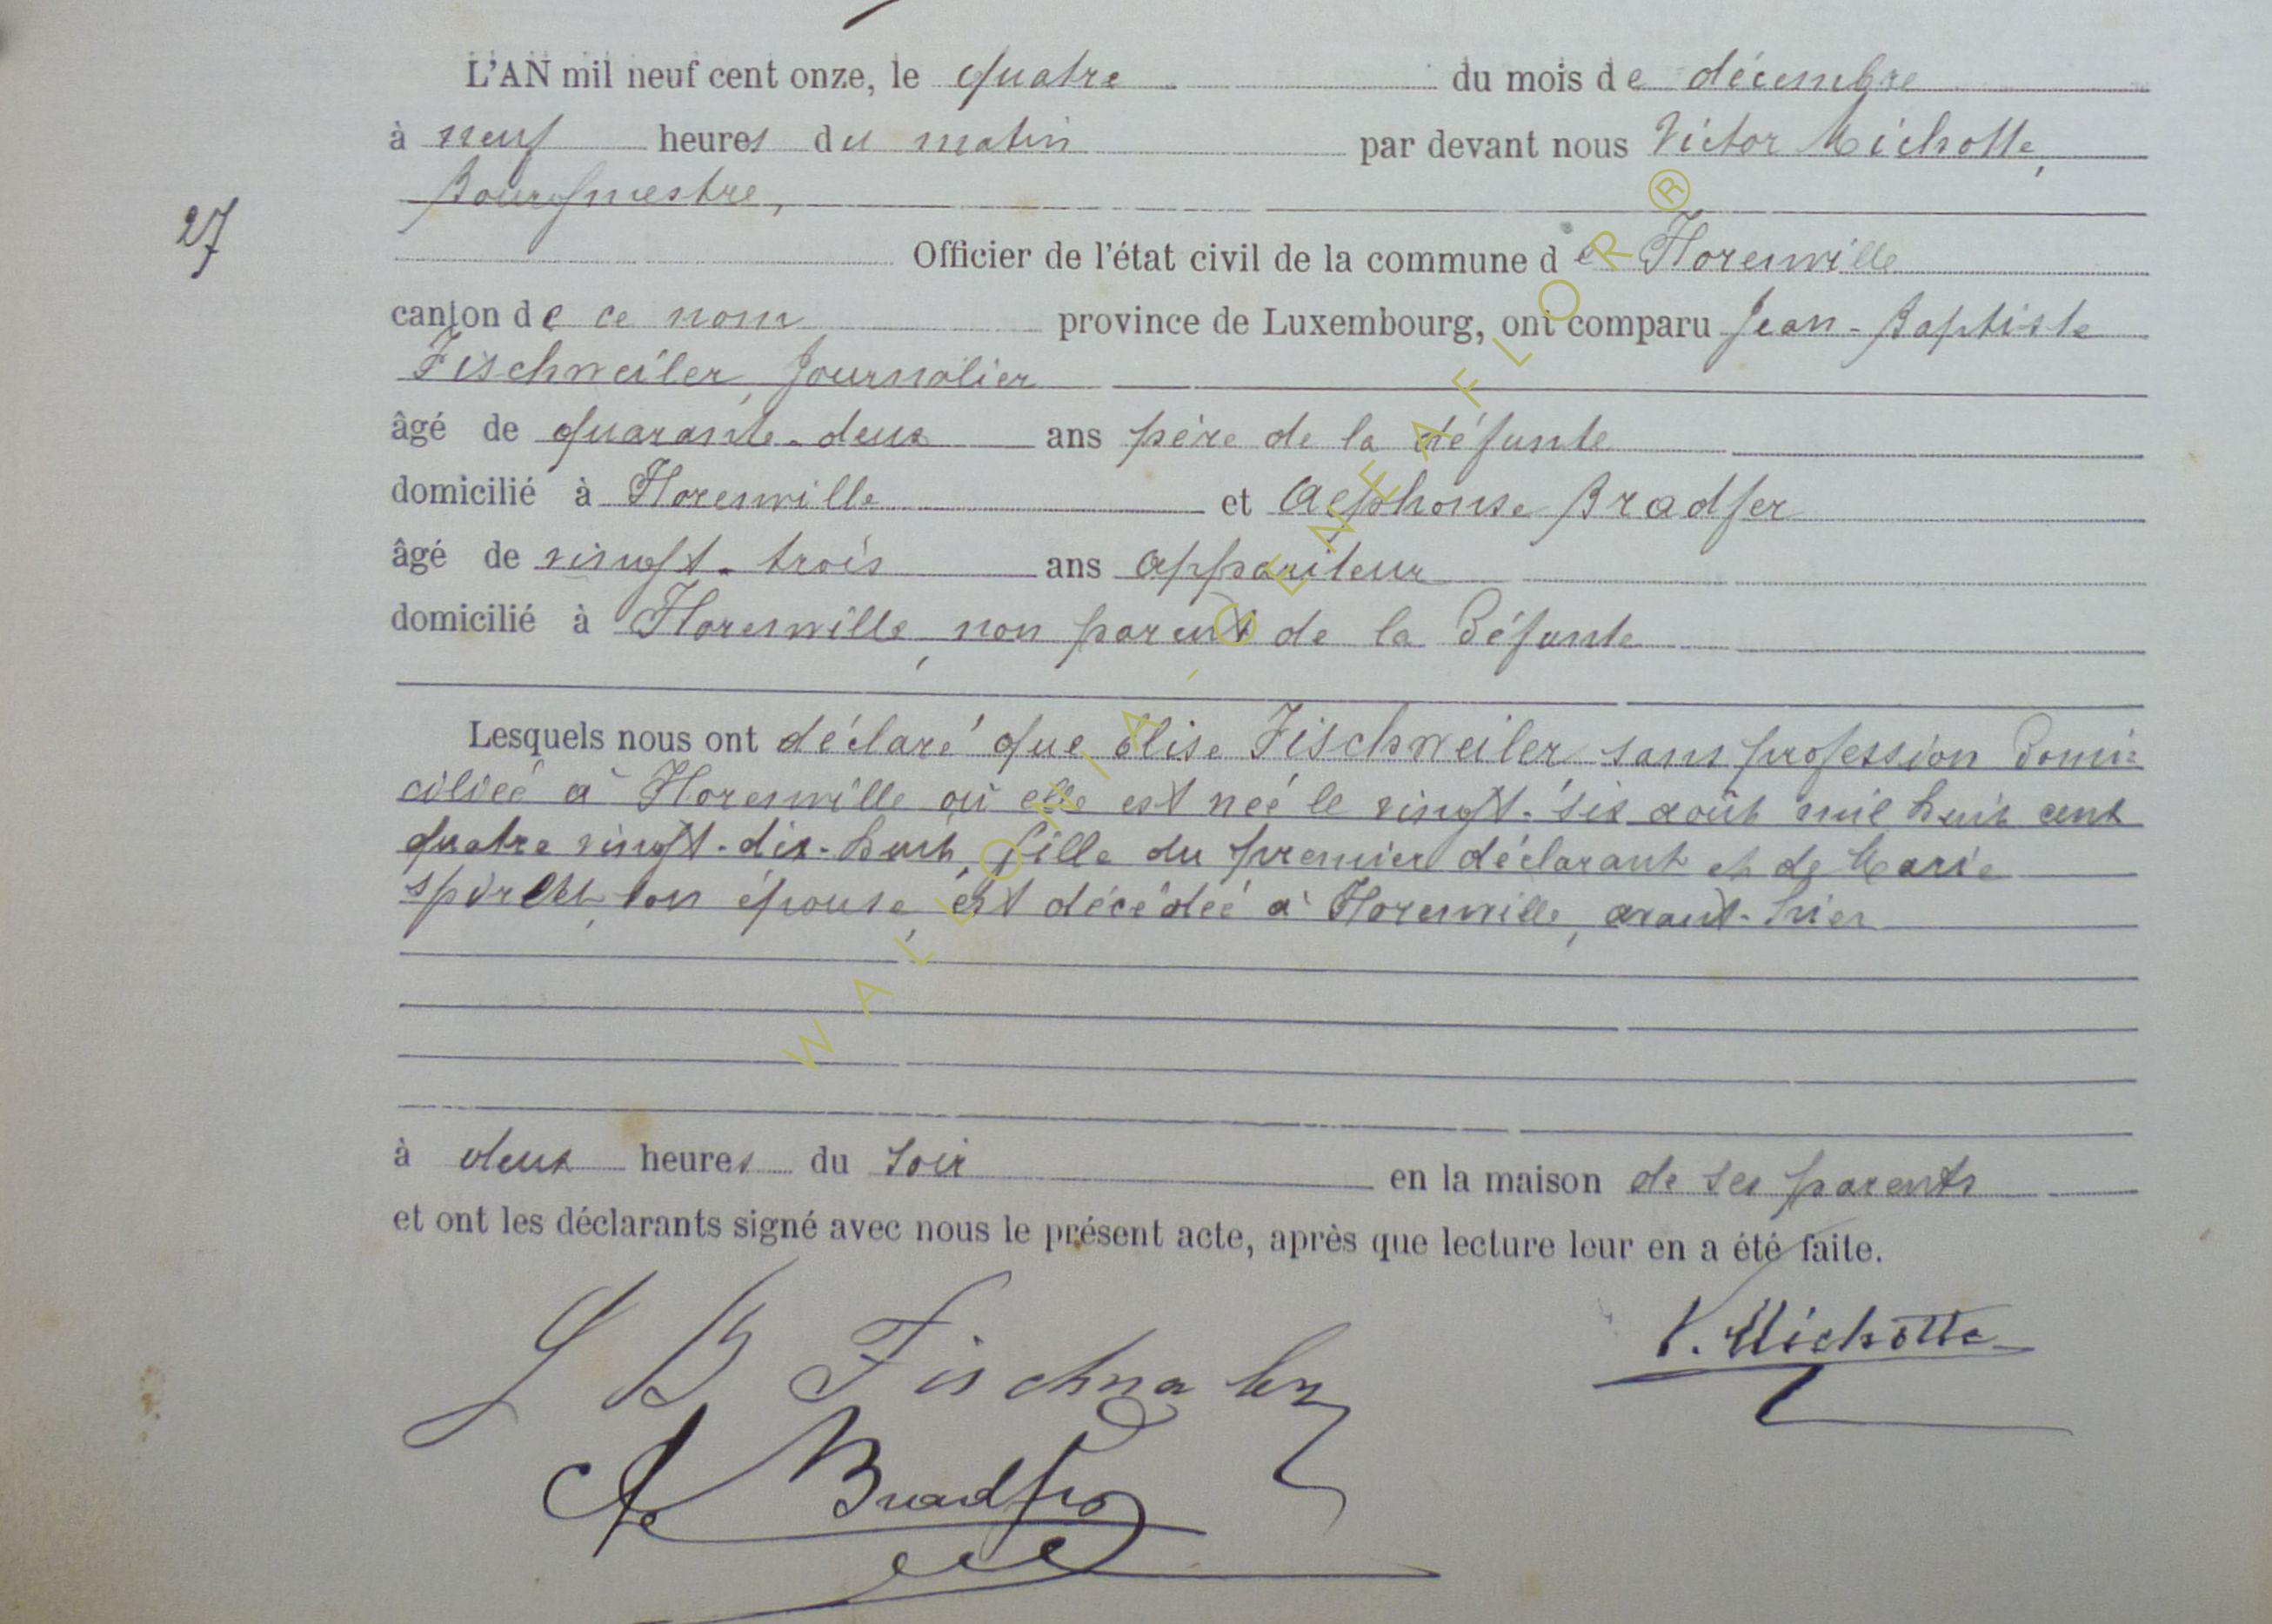 L'AN mil neuf cent onze, le quatre du mois de décembre
à neuf heures du matin par devant nous Victor Michotte,
Bourgmestre,
27
Officier de l'état civil de la commune de Florenville
canton de ce nom province de Luxembourg, ont comparu Jean-Baptiste
Fischweiler, Journalier
âgé de quarante-deux ans père de la défunte
domicilié à Florenville et Alphonse Bradfer
âgé de vingt-trois ans appariteur
domicilié à Florenville, non parent de la défunte
Lesquels nous ont déclaré que Élise Fischweiler, sans profession domi=
ciliée à Florenville où elle est née le vingt-six août mil huit cent
quatre vingt-dix-huit, fille du premier déclarant et de Marie
son épouse, est décédée à Florenville, avant-hier
à deux heures du soir en la maison de ses parents
et ont les déclarants signé avec nous le présent acte, après que lecture leur en a été faite.
V. Michotte
J B
A Bradfer
WALLONIA - GENEAFLOR ®